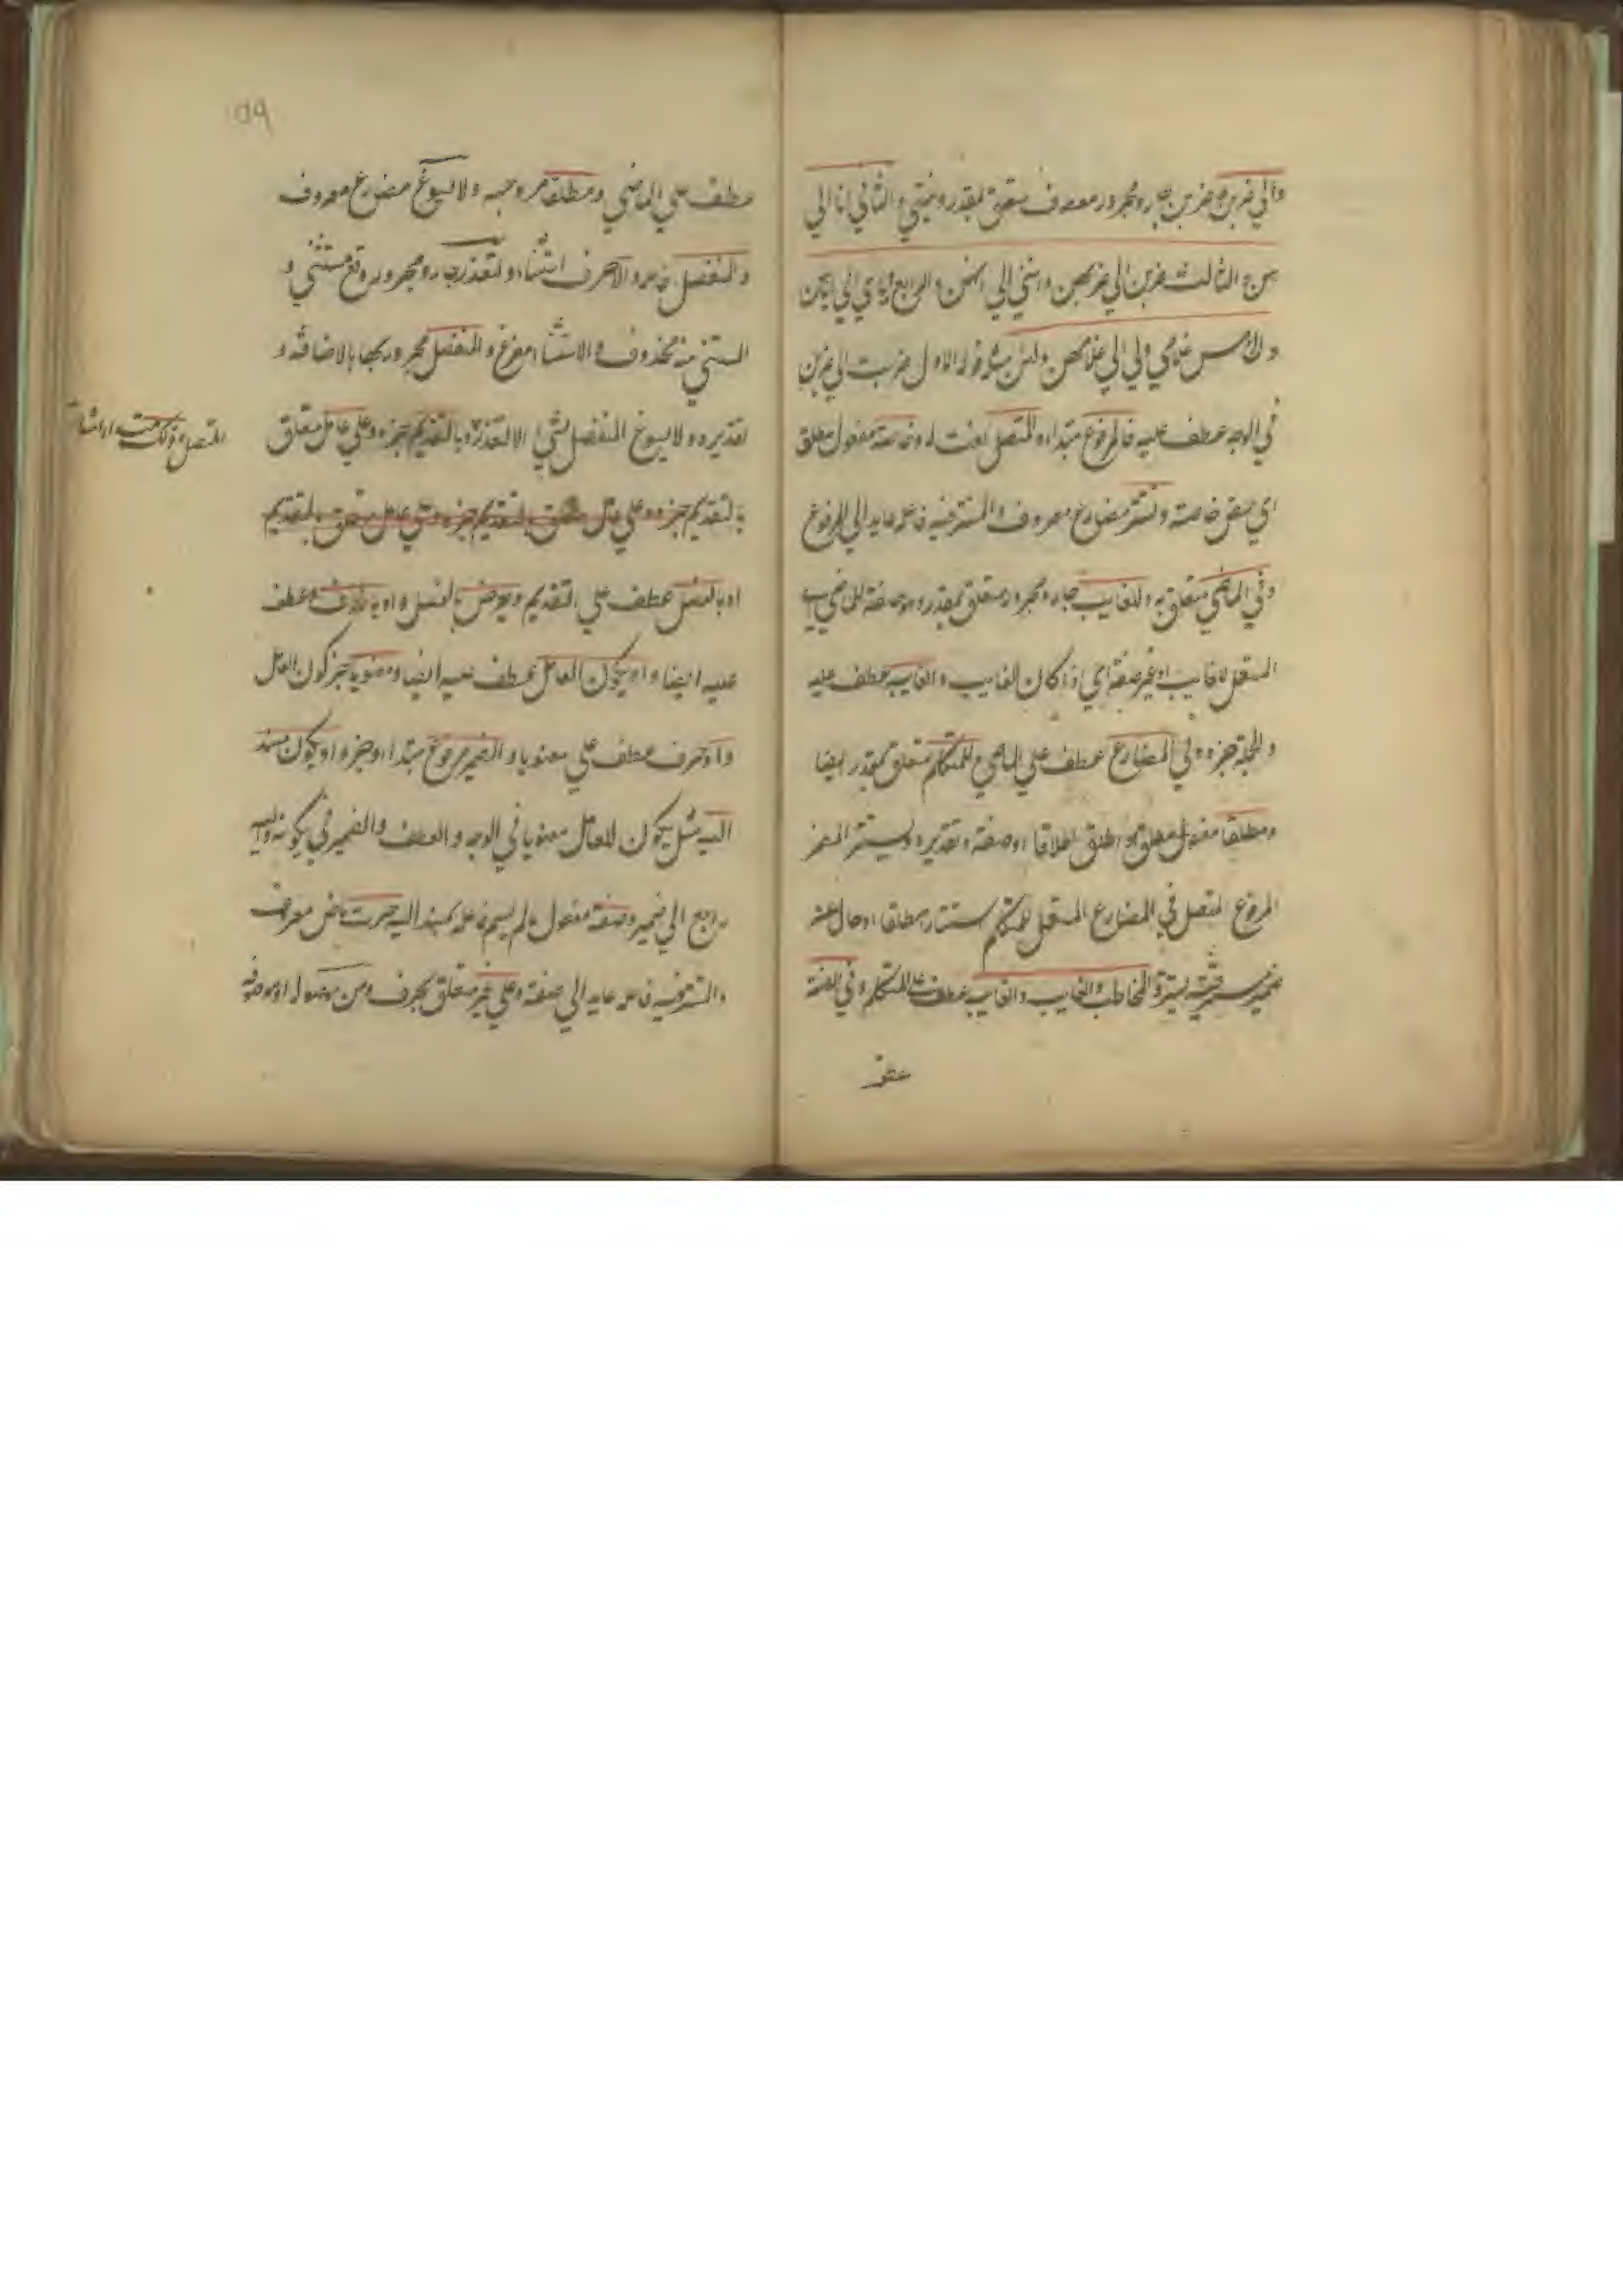 والى ضربن وضربن جار ومجرور معروف متعلق بمقدر ونحيتي والثاني انا الي
هن والثالث ضربن الي ضربهن وانني الي انهن والرابع اياي الي اياهن
والخامس غلامي ولي الي غلامهن ولهن مثل قوله الاول ضربت الي ضربن
في الوجه عطف عليه فالمرفوع مبتداء والمتصل نعت له وخاصة مفعول مطلق
اي خاصة وتستتر مضارع معروف والمستتر فيه فاعله عايد الي المرفوع
وفي الماضي متعلق به وللغايب جار ومجرور متعلق بمقدر وهو صفة للماضي
المستعمل للغايب او غير صفة اي اذا كان للغايب والغايبة عطف عليه
والجملة خبره وفي المضارع عطف علي الماضي وللمتكلم متعلق بمقدر ايضا
ومطلقا مفعول مطلق اي اطلق اطلاقا او صفة وتقديره ويستتر الضمير
المرفوع المتصل في المضارع المستعمل للمتكلم استتارا مطلقا او حال عن
ضمير يستتر والمخاطب والغايب والغايبة عطف علي للمتكلم وفي الصفة
عطف
عطف علي الماضي ومطلقا مر وجهه ولا يسوغ مضارع معروف
والمنفصل فاعله والا حرف استثناء ولتعذر جار ومجرور وقع مستثني و
المستثني منه محذوف والاستثناء مفرغ والمنفصل مجرور بها بالاضافة و
تقديره ولا يسوغ المنفصل لشيء الا لتعذر وبالتقديم خبره وعلي عامل متعلق
المتصل وذلك
بالتقديم خبره وعلي عامل متعلق بالتقديم خبره وعلي عامل متعلق بالتقديم
او بالفصل عطف علي التقديم ولغرض بالفصل او بالحذف عطف
عليه ايضا او بكون العامل عطف عليه ايضا ومعنويا خبر كون العامل
واو حرف عطف علي معنويا والضمير مرفوع مبتداء وخبره او بكون مسند
اليه مثل بكون العامل معنويا في الوجه والعطف والضمير في بكونه واليه
راجع الي ضمير وصفة مفعول ما لم يسم فاعله لمسند اليه جرت ماض معروف
والمستتر فيه فاعله عايد الي صفة وعلي غير متعلق بجرت ومن موصولة او موصوفة